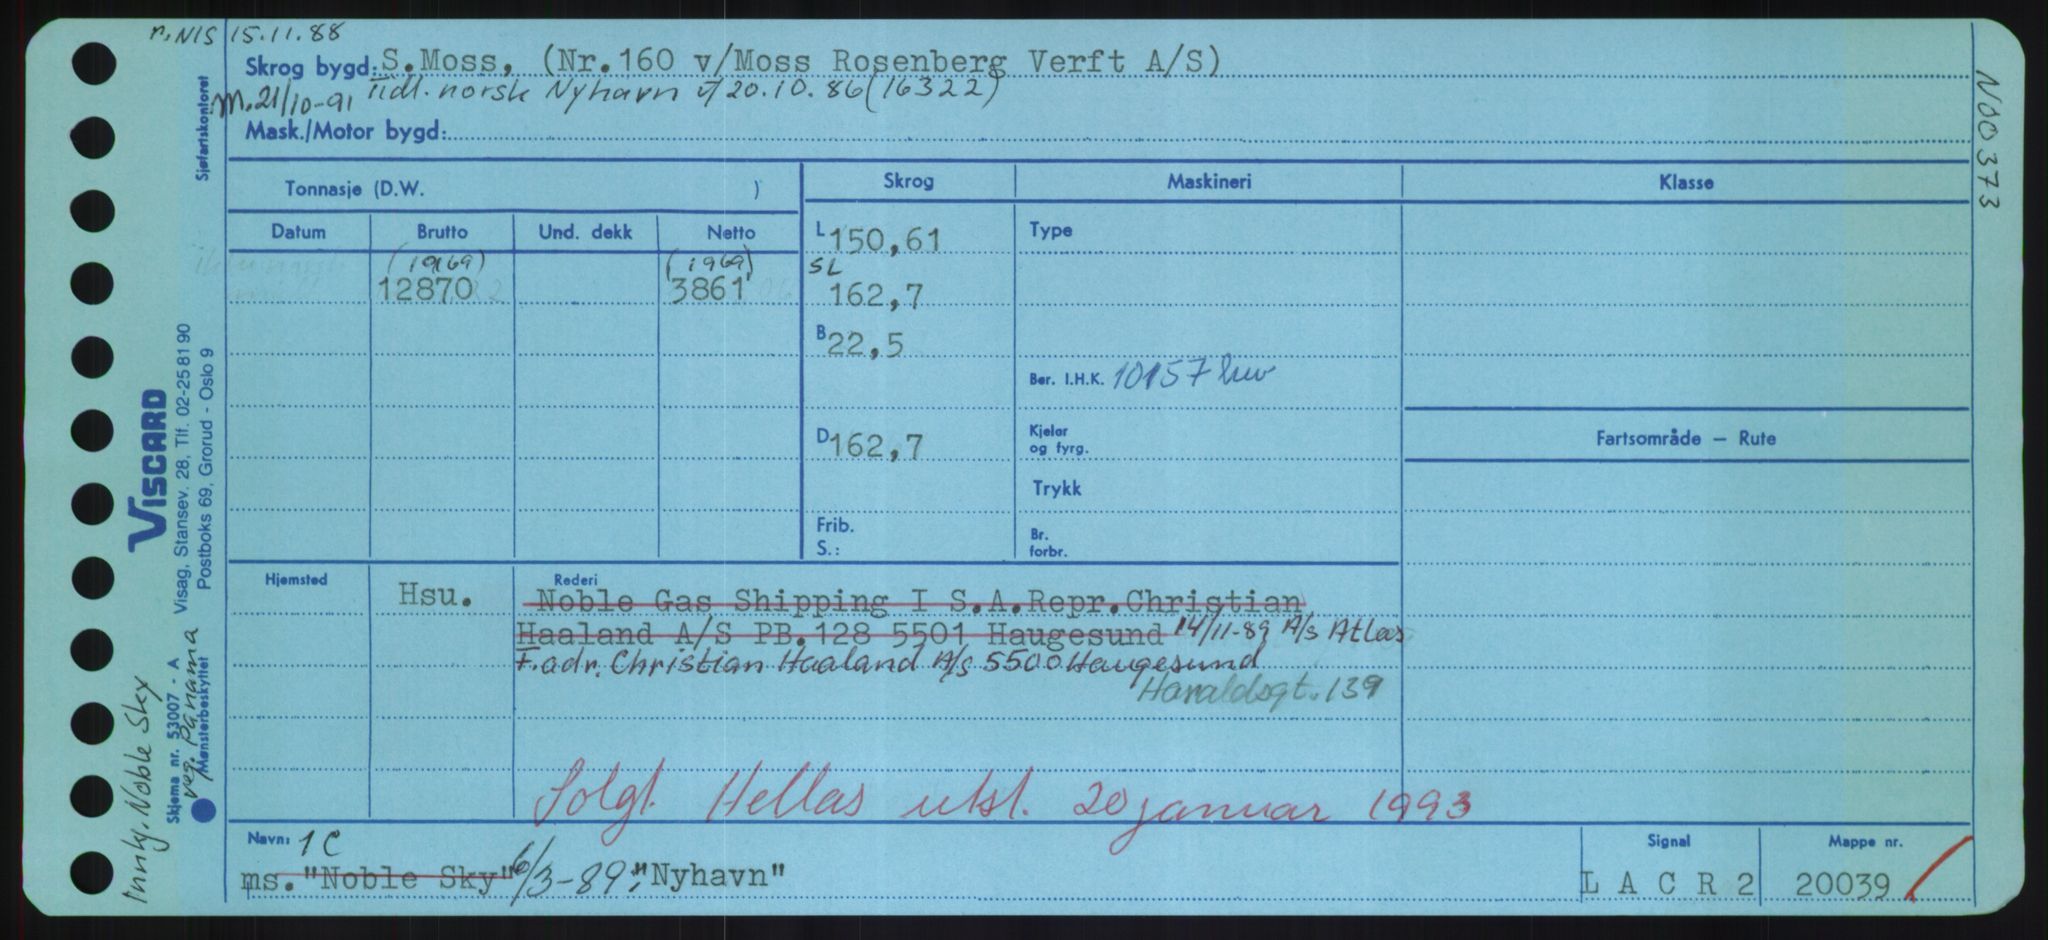 n. NIS 15.11.88
Skrog bygd: S.Moss, (Nr.160 v/Moss Rosenberg Verft A/S)
m. 21/10-91 Tidl. norsk Nyhavn t/ 20.10.86 (16322)
Mask./Motor bygd:
N00373
Tonnasje (D.W. )
Skrog Maskineri Klasse
Datum Brutto Und. dekk Netto
L 150,61 Type
(1969) (1969) SL
12870 3861 162,7
B 22,5
Ber. I.H.K. 10157 kw
Fartsområde — Rute
D 162,7 Kjelar
og fyrg.
Trykk
Frib.
S.:
Br.
forbr.
Hjemsted Hsu. Rederi
Noble Gas Shipping I S.A.Repr.Christian
Haaland A/S PB.128 5501 Haugesund 14/11-89 A/s Atlas
F.adr. Christian Haaland A/s 5500 Haugesund
Haraldsgt. 139
Solgt Hellas utst. 20 januar 1993
Navn: 1C
ms. "Noble Sky" 6/3-89: "Nyhavn"
Signal
L A C R 2
Mappe nr.
20039
Sjøfartskontoret
VISCARD
Visag, Stansev. 28, Tlf. 02-25 81 90
Postboks 69, Grorud - Oslo 9
Skjema nr. 53007 - A
Mønsterbeskyttet
veg. Panama
Innkj. Noble Sky